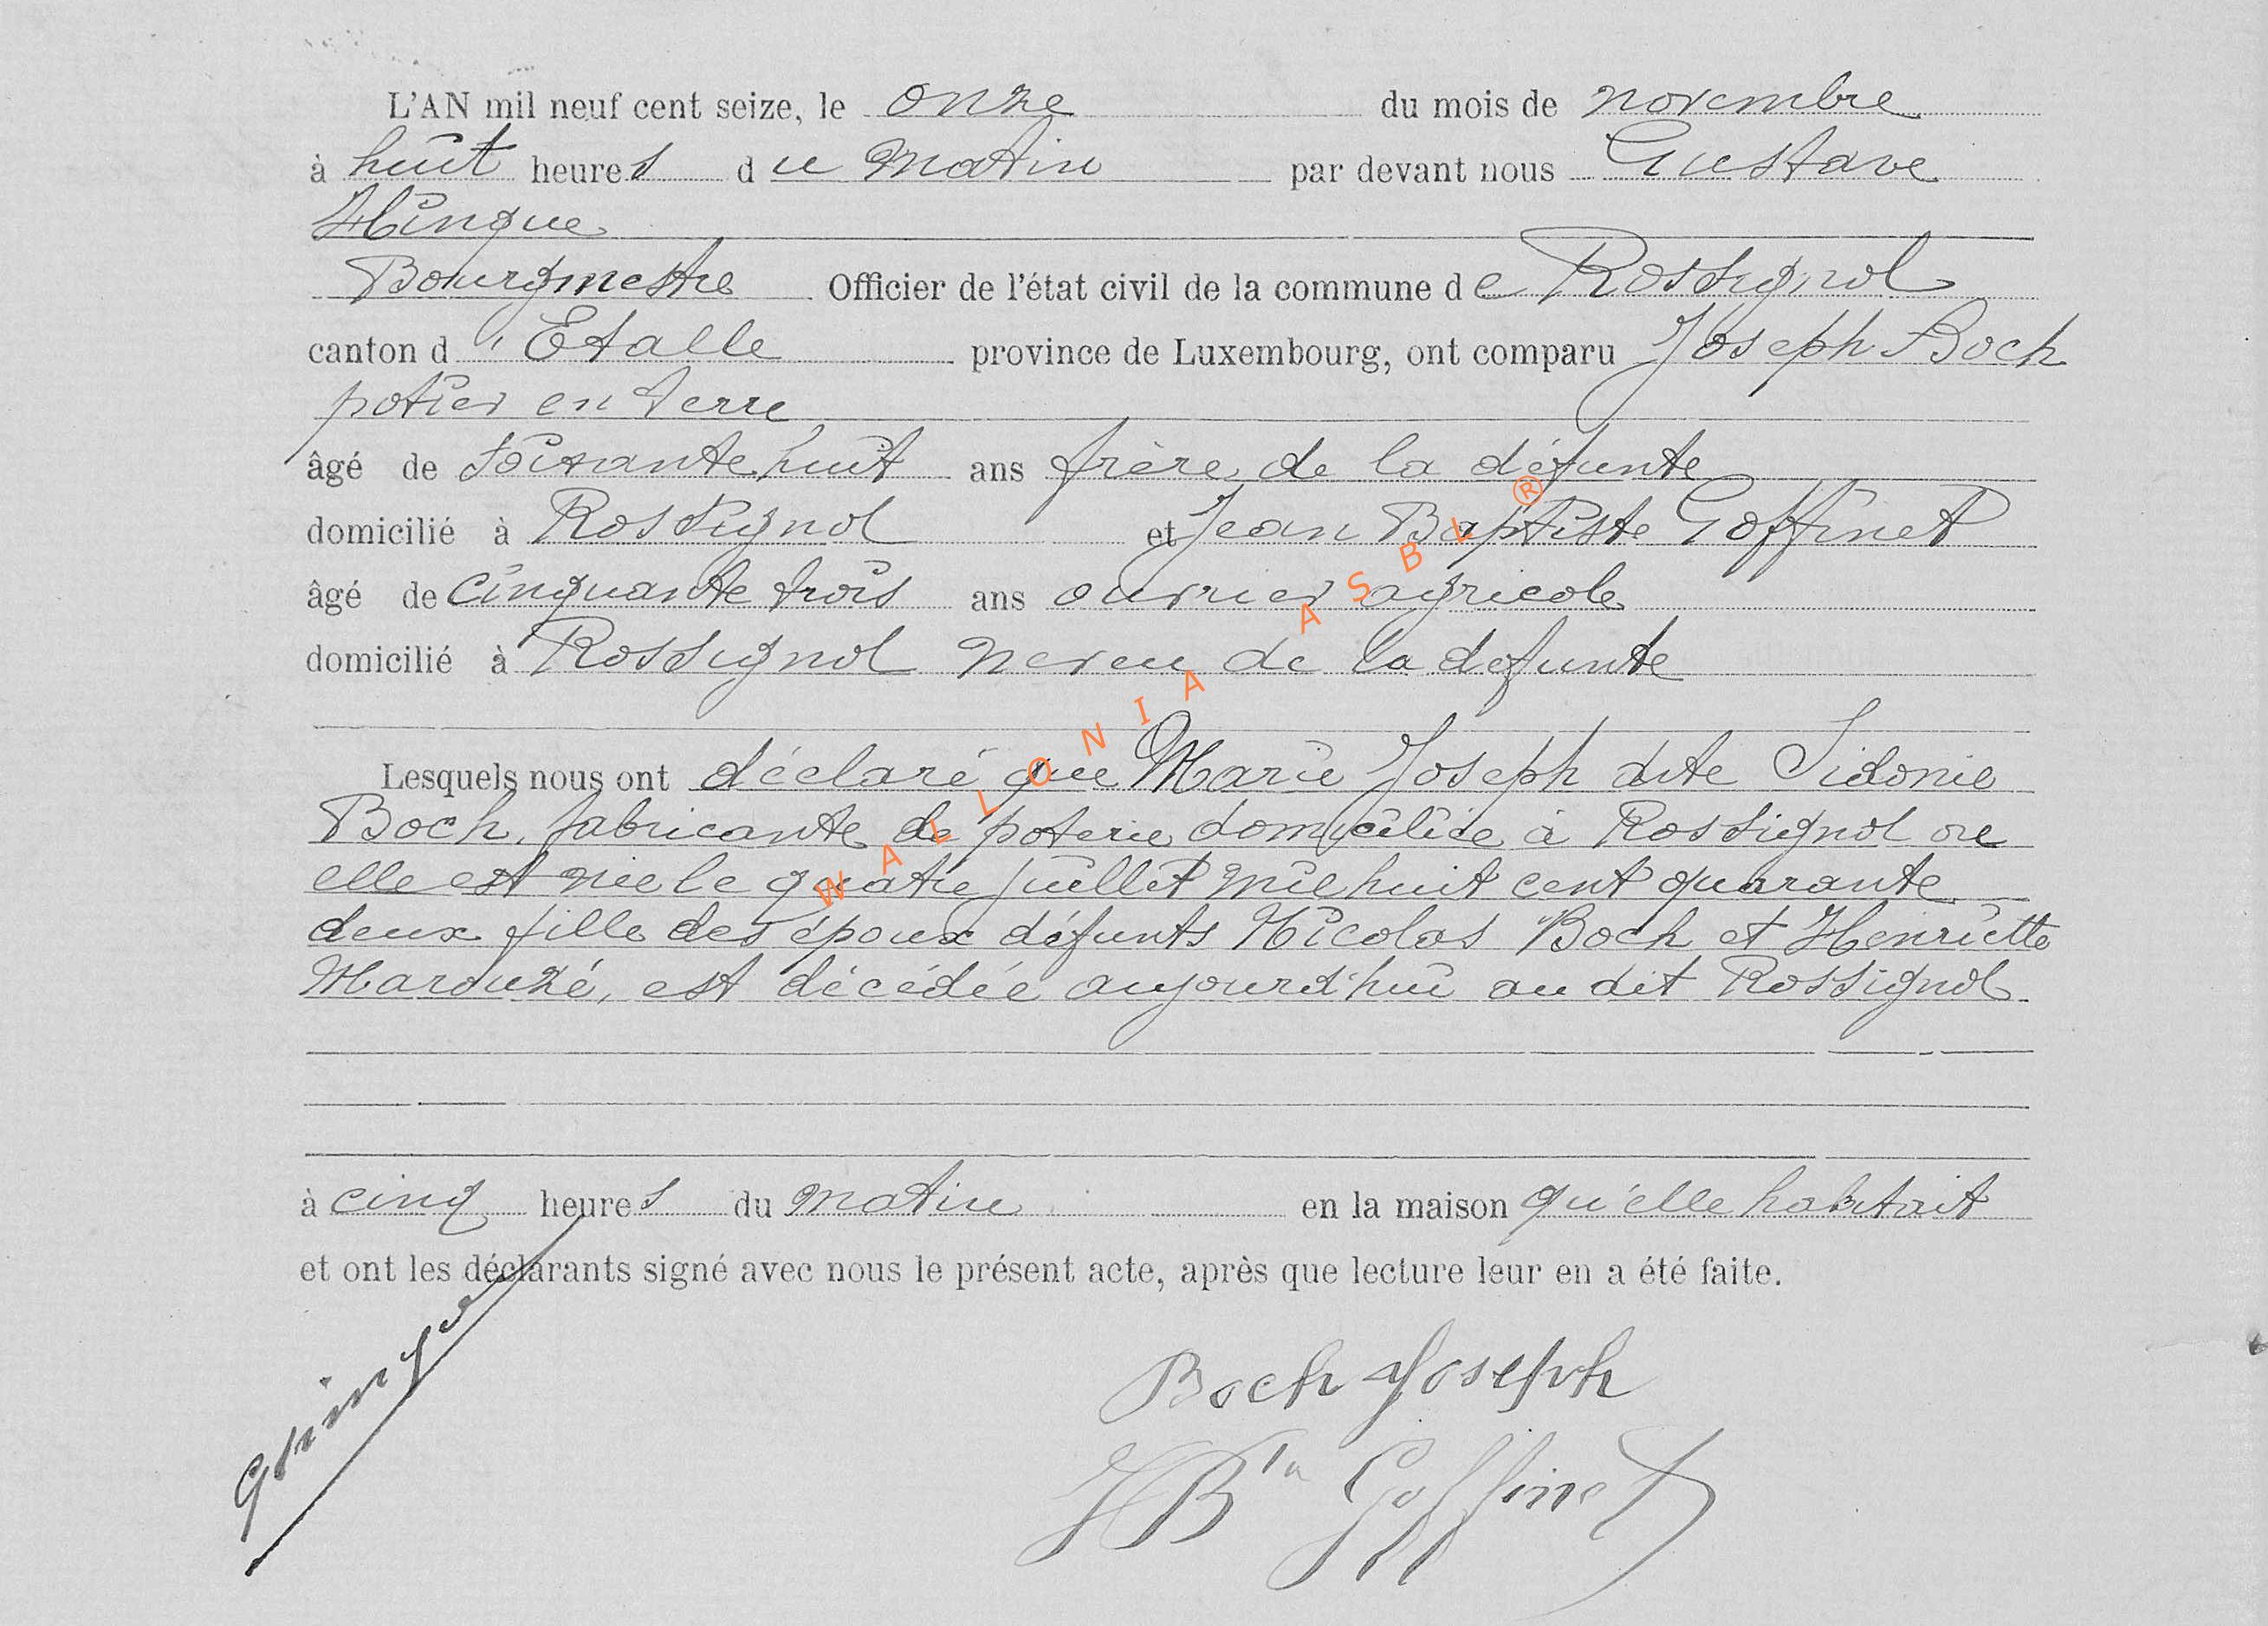 L'AN mil neuf cent seize, le onze du mois de novembre
à huit heures du matin par devant nous Gustave
Hinque
Bourgmestre Officier de l'état civil de la commune de Rossignol
canton d'Etalle province de Luxembourg, ont comparu Joseph Boch
potier en terre
âgé de soixante huit ans frère de la défunte
domicilié à Rossignol et Jean Baptiste Goffinet
âgé de cinquante trois ans ouvrier agricole
domicilié à Rossignol neveu de la defunte
Lesquels nous ont déclaré que Marie Joseph dite Sidonie
Boch, fabricante de poterie domiciliée à Rossignol ou
elle est née le quatre juillet mil huit cent quarante
deux fille des époux défunts Nicolas Boch et Henriette
Marouzé, est décédée aujourd'hui au dit Rossignol
à cinq heures du matin en la maison qu'elle habitait
et ont les déclarants signé avec nous le présent acte, après que lecture leur en a été faite.
Boch Joseph
JBte Goffinet
WALLONIA ASBL ®